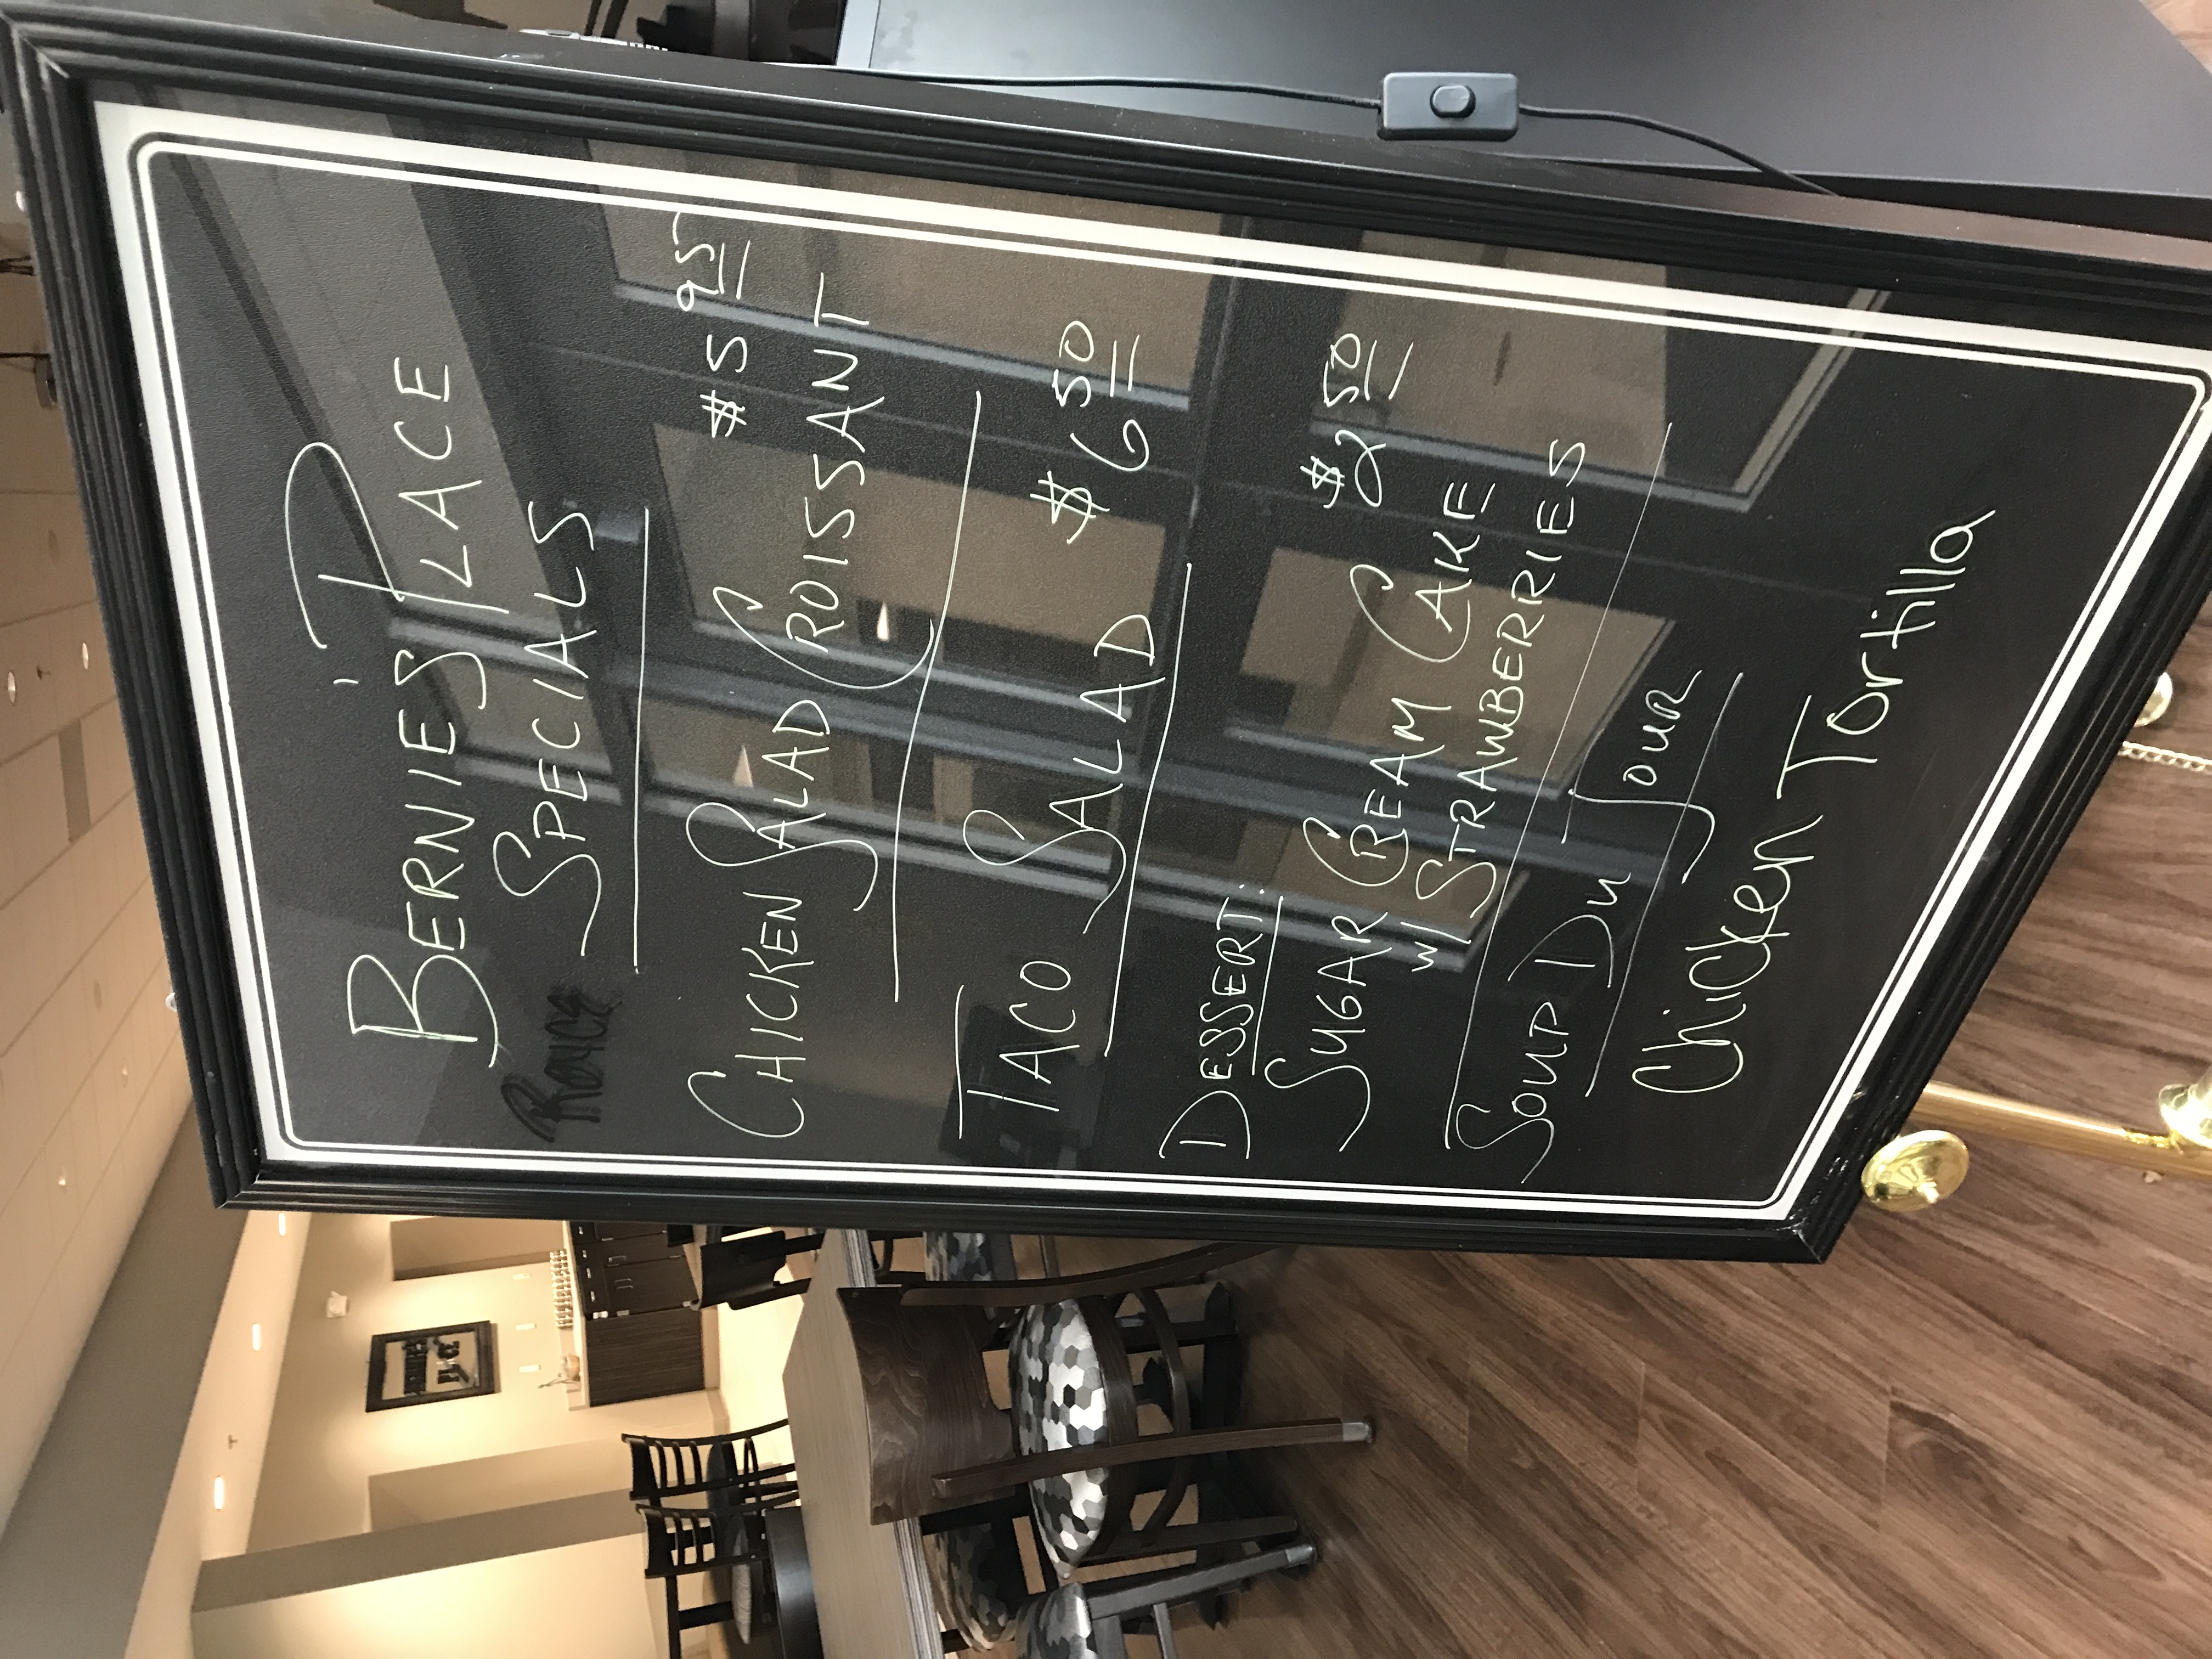 BERNIE'S PLACE
SPECIALS
$5 95
CHICKEN SALAD CROISSANT
TACO SALAD $6 50
DESSERT: $2 50
SUGAR CREAM CAKE
w/ STRAWBERRIES
SOUP DU JOUR
Chicken Tortilla